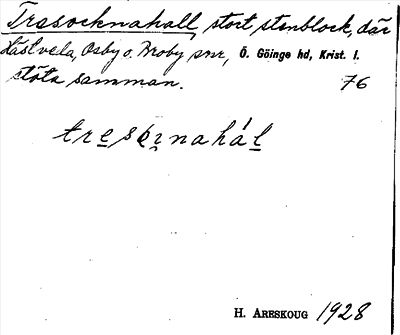 Tresocknahall, stort stenblock, där
Hästveda, Osby o. Broby snr, Ö. Göinge hd, Krist. l.
stöta samman. 76
H. ARESKOUG 1928